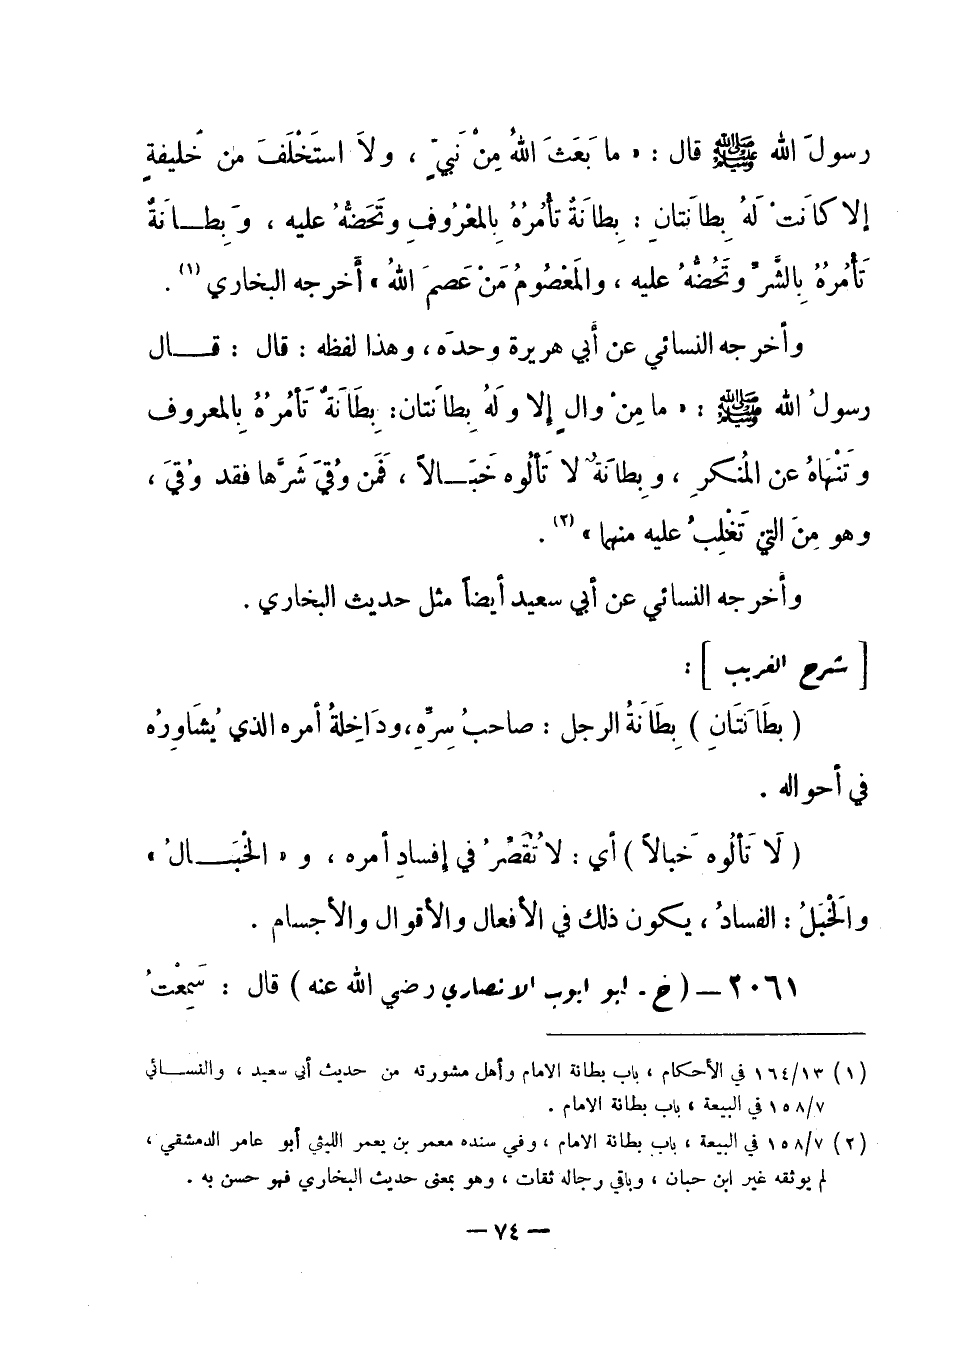 رسولَ الله ﷺ قال : « ما بَعَثَ اللهُ مِنْ نَبيٍّ ، ولاَ استَخْلَفَ من خَليفةٍ
إلا كانَت ْ لَهُ بِطانَتانِ : بِطانةٌ تأمُرُهُ بِالمعْرُوفِ وتَحَضُّهُ عليه ، وَبِطــانَةٌ
تَأْمُرُهُ بِالشَّرِّ وتَحُضُّهُ عليه ، والمَعْصُومُ مَنْ عَصمَ اللهُ » أَخرجه البخاري (١) .
وأخرجه النسائي عن أبي هريرة وحدَه ، وهذا لفظه : قال : قــال
رسولُ الله ﷺ : « ما مِنْ والٍ إلا ولَهُ بِطانَتان : بِطَانَةٌ تَأمُرُهُ بِالمعروف
وتَنْهَاهُ عن المُنكرِ ، وبِطانَةٌ لا تَألُوه خَبَــالاً ، فَمَن وُقيَ شَرَّها فقد وُقيَ ،
وهو مِنَ التي تَغْلِبُ عليه منهما » (٢) .
وأخرجه النسائي عن أبي سعيد أيضاً مثل حديث البخاري .
[ شرح الغريب ] :
( بِطَانَتَانِ ) بِطَانَةُ الرجل : صاحبُ سِرِّهِ ، ودَاخِلةُ أمره الذي يُشاوِرُه
في أحواله .
( لَا تَألُوه خَبالاً ) أي : لا تُقَصِّرُ في إفسادِ أمره ، و « الخْبَــالُ »
والخَبْلُ : الفسادُ ، يكون ذلك في الأفعال والأقوال والأجسام .
٢٠٦١ – ( خ - أبو أيوب الأنصاري رضي الله عنه ) قال : سَمِعْتُ
(١) ١٦٤/١٣ في الأحكام ، باب بطانة الامام وأهل مشورته من حديث أبي سعيد ، والنســائي
١٥٨/٧ في البيعة ، باب بطانة الامام .
(٢) ١٥٨/٧ في البيعة ، باب بطانة الامام ، وفي سنده معمر بن يعمر الليثي أبو عامر الدمشقي ،
لم يوثقه غير ابن حبان ، وباقي رجاله ثقات ، وهو بمعنى حديث البخاري فهو حسن به .
– ٧٤ –